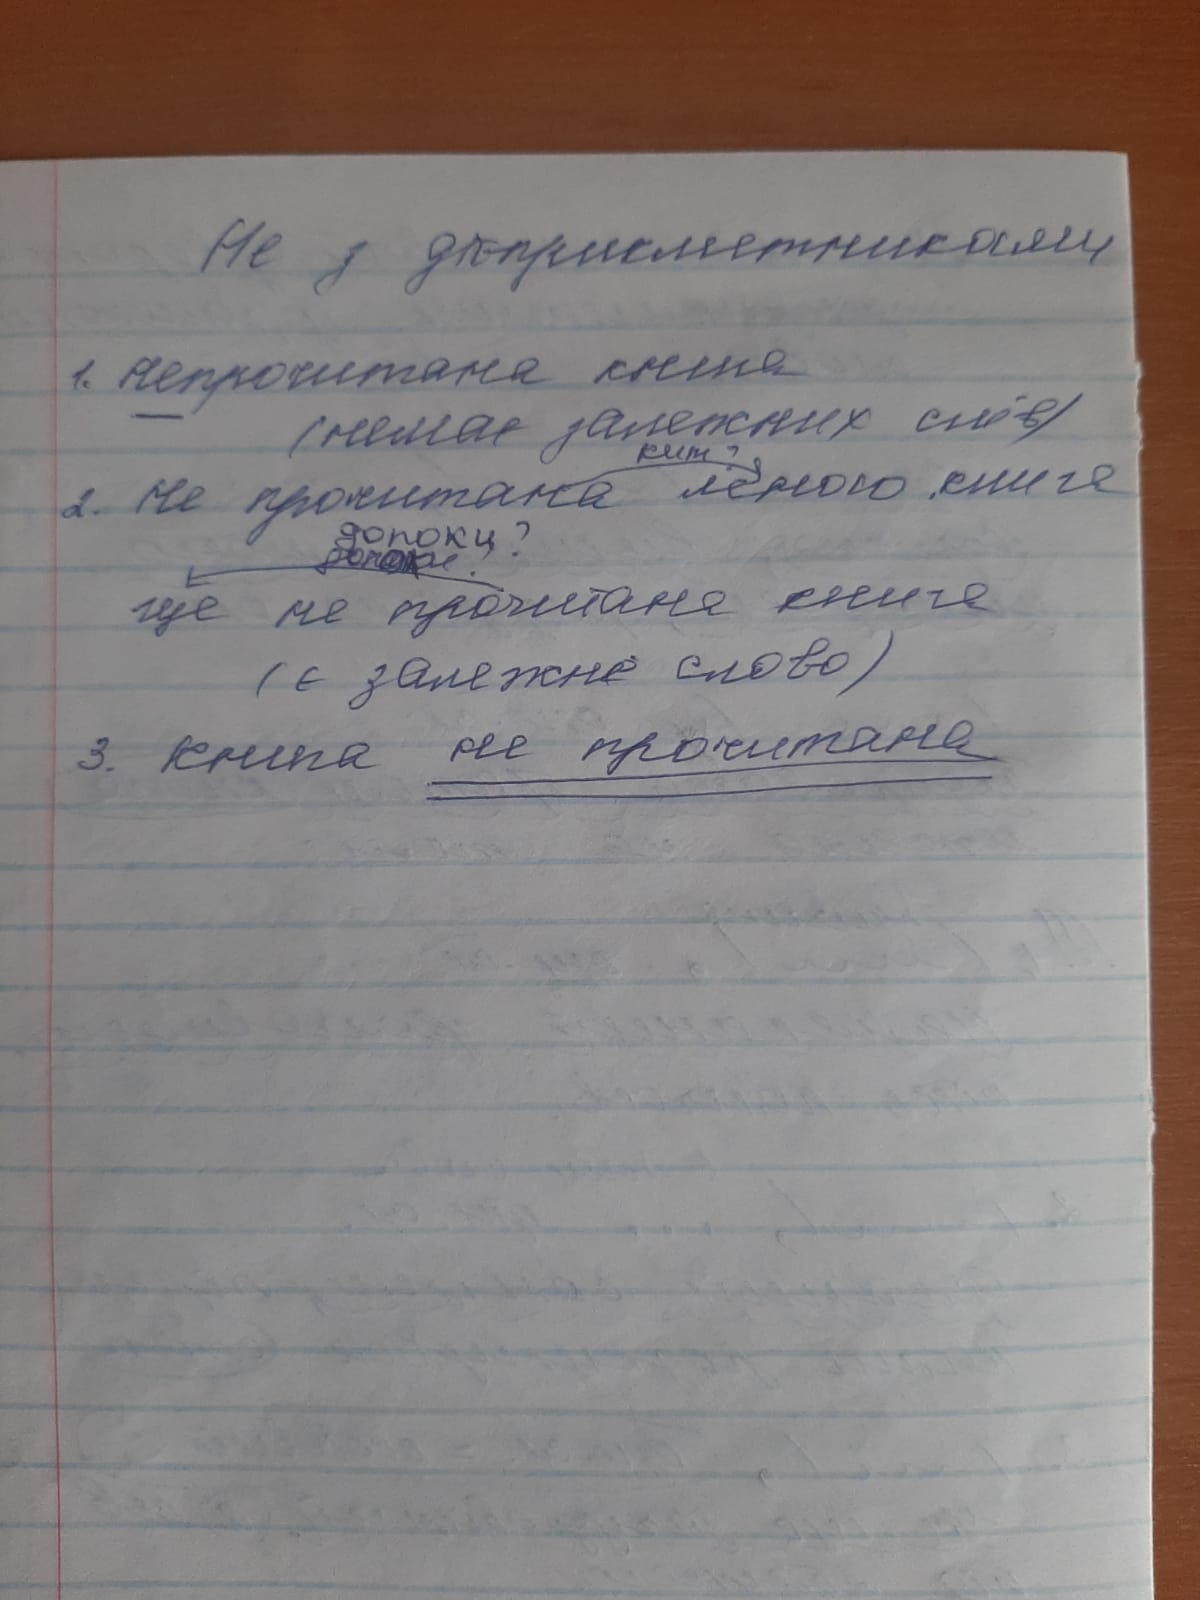 Не з дієприкметниками
1. Непрочитана книга
(немає залежних слів)
ким?
2. Не прочитана мною книга
допоки?
ще не прочитана книга
(є залежне слово)
3. Книга не прочитана